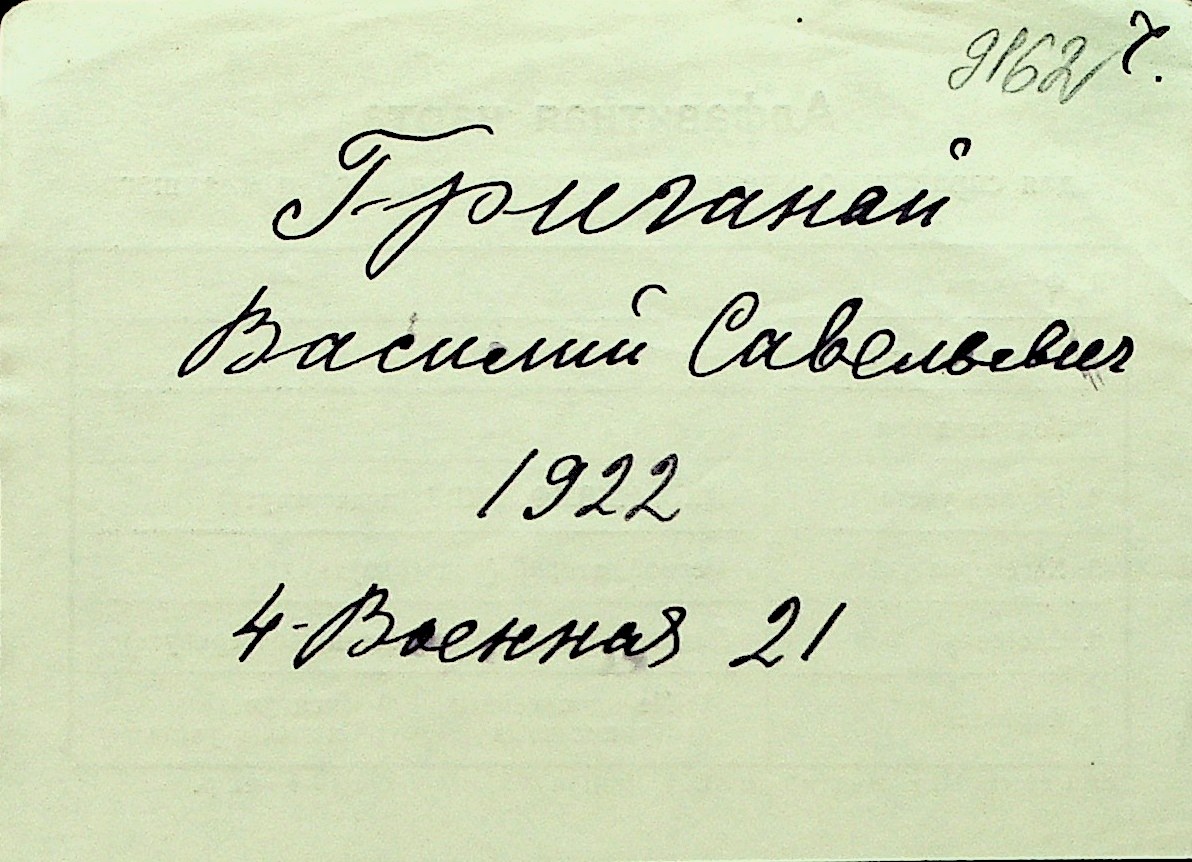 9162
Гричаной
Василий Савельевич
1922
4-Военная 21